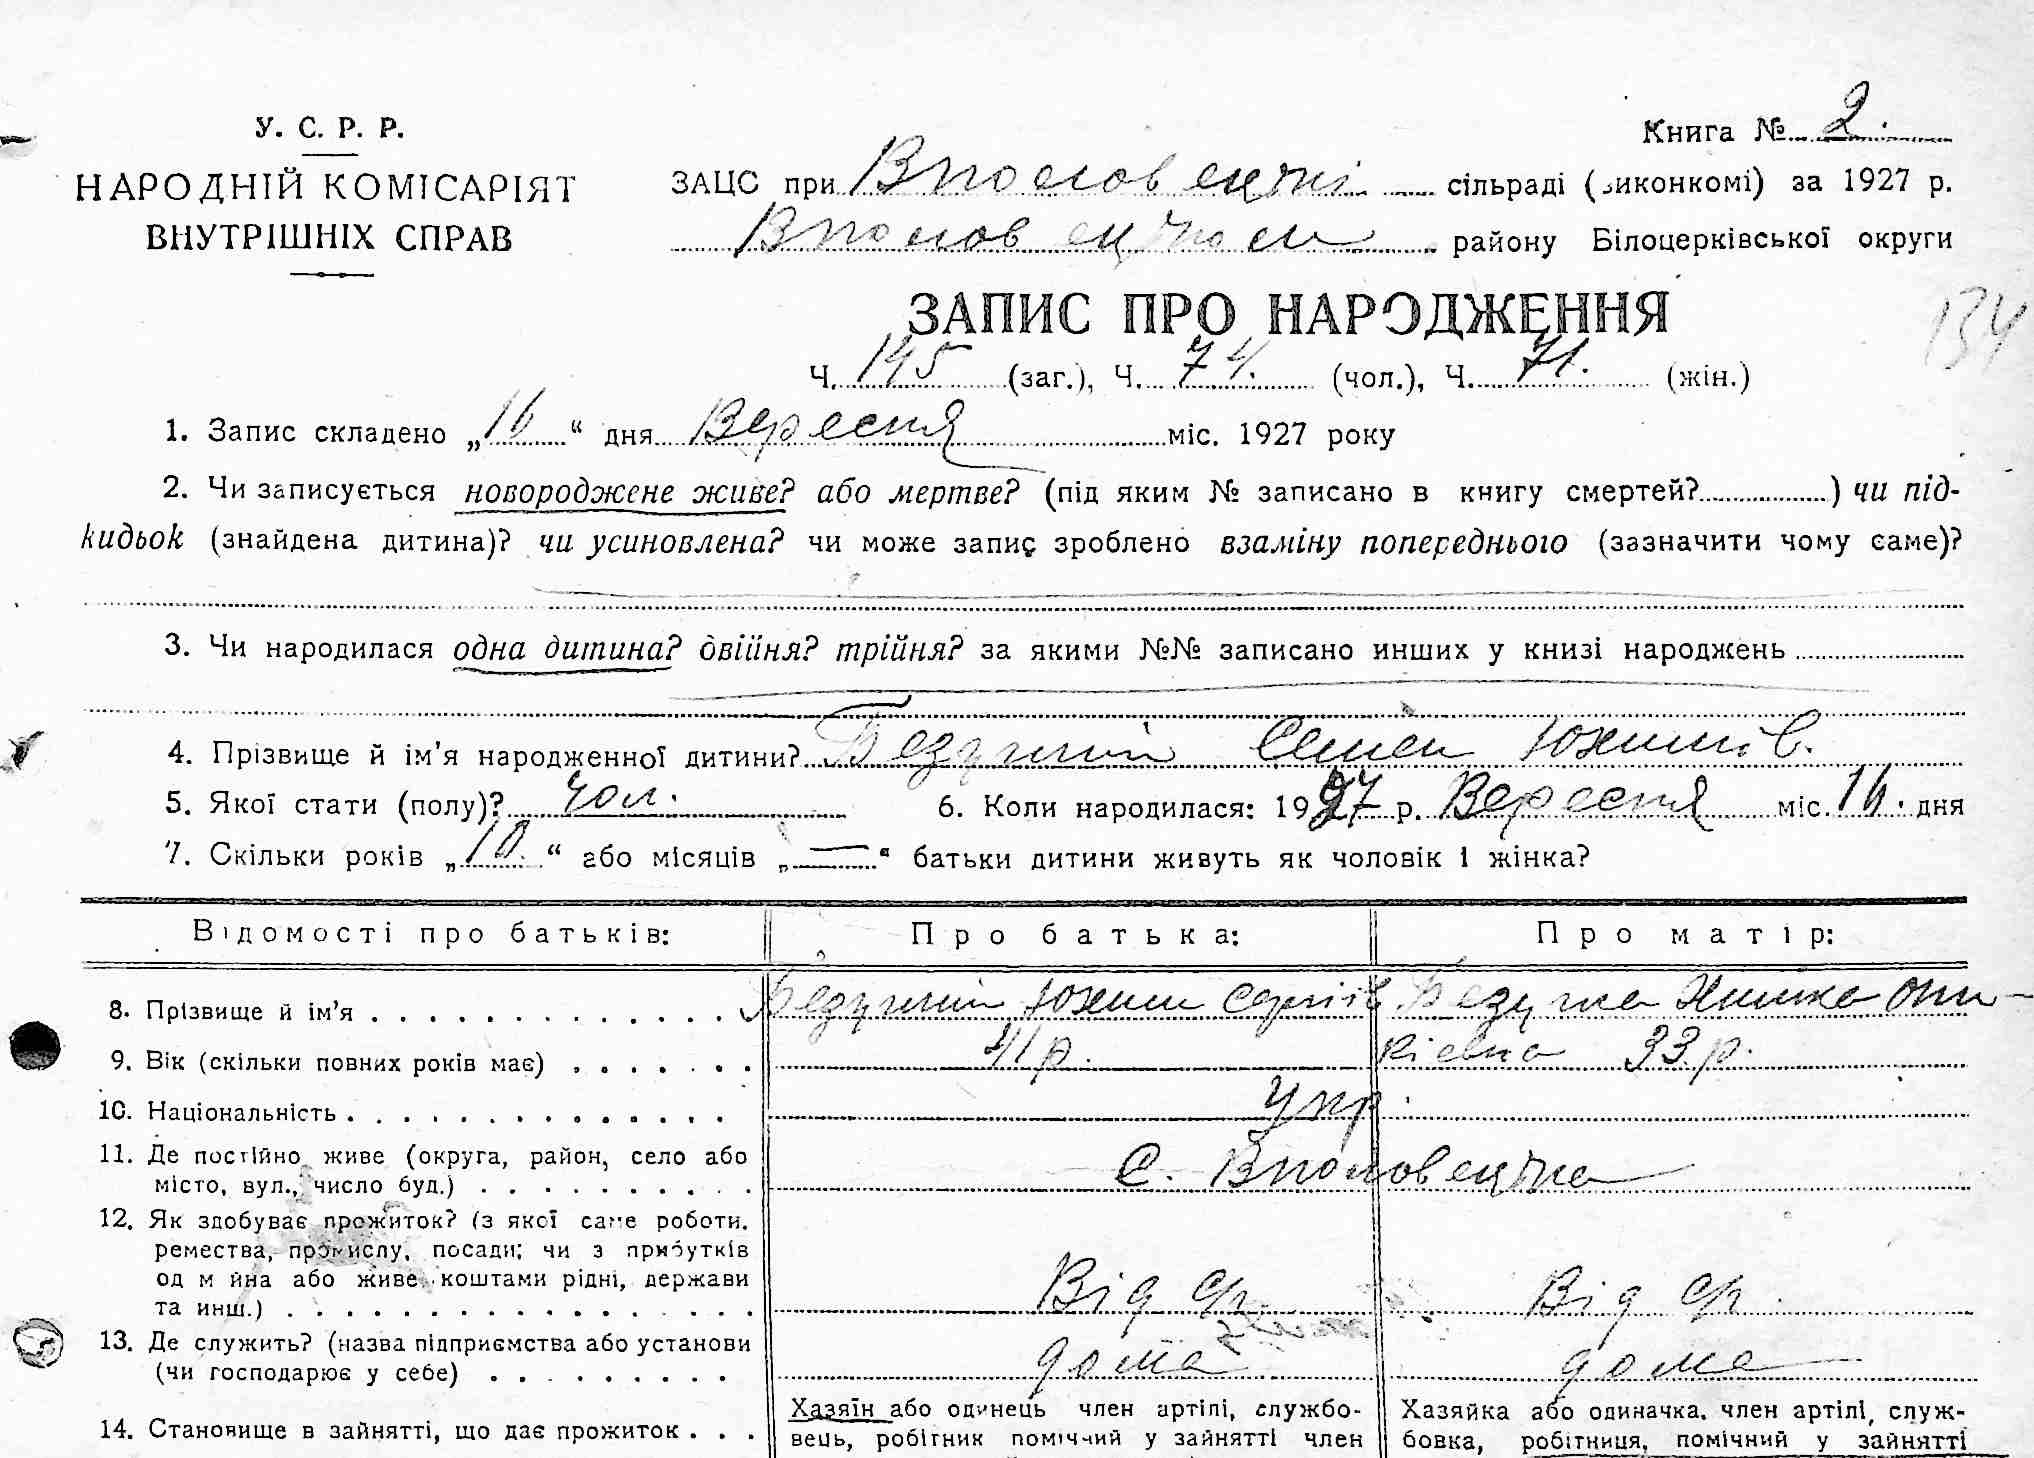 У. С. Р. Р.
НАРОДНІЙ КОМІСАРІЯТ
ВНУТРІШНІХ СПРАВ
Книга № 2.
ЗАЦС при Вполовецькі сільраді (виконкомі) за 1927 р.
району Білоцерківської округи
ЗАПИС ПРО НАРОДЖЕННЯ
134
Ч. 145 (заг.), Ч. 74. (чол.), Ч. 71. (жін.)
1. Запис складено „16“ дня Вересня міс. 1927 року
2. Чи записується новороджене живе? або мертве? (під яким № записано в книгу смертей?) чи під-
кидьок (знайдена дитина)? чи усиновлена? чи може запис зроблено взаміну попереднього (зазначити чому саме)?
3. Чи народилася одна дитина? двійня? трійня? за якими №№ записано инших у книзі народжень
4. Прізвище й ім’я народженної дитини? Безугний Семен Юхимів.
5. Якої стати (полу)? чол. 6. Коли народилася: 1927 р. Вересня міс. 16. дня
7. Скільки років „10.“ або місяців „—“ батьки дитини живуть як чоловік і жінка?
Відомості про батьків: Про батька: Про матір:
8. Прізвище й ім’я Юхим Сергіїв
9. Вік (скільки повних років має) 41 р. 33 р.
10. Національність Укр.
11. Де постійно живе (округа, район, село або
місто, вул., число буд.) С. Вполовецька
12. Як здобуває прожиток? (з якої саме роботи,
ремества, промислу, посади; чи з прибутків
од майна або живе коштами рідні, держави
та инш.) Від ср. Від ср.
13. Де служить? (назва підприємства або установи
(чи господарює у себе) дома дома
14. Становище в зайнятті, що дає прожиток
Хазяїн або одинець член артілі, службо-
вець, робітник помічний у зайнятті член
Хазяйка або одиначка, член артілі, служ-
бовка, робітниця, помічний у зайнятті